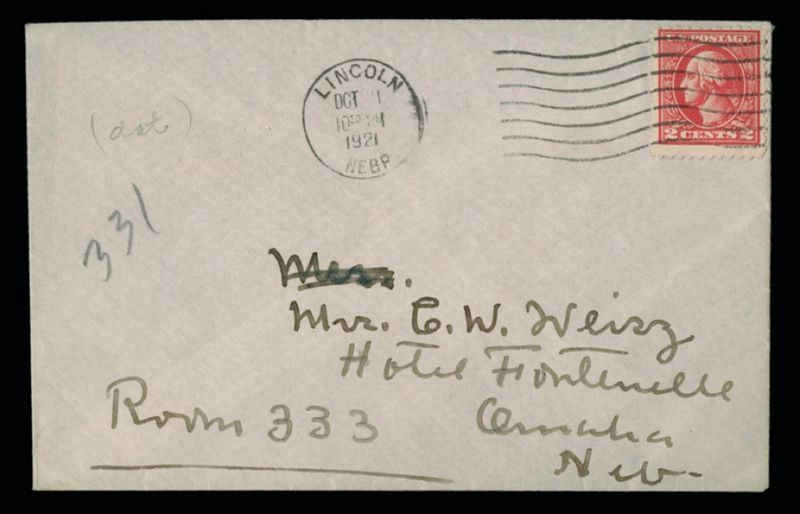 LINCOLN
OCT 1
10 PM
1921
NEBR
U.S. POSTAGE
2 CENTS 2
(dat)
331
Mrs. C. W. Weisz
Hotel Fontenelle
Omaha
Neb.
Room 333